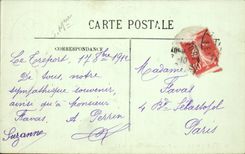 CARTE POSTALE
CORRESPONDANCE
Le Treport, 17 8bre 1912
De tous, notre
sympathique souvenir,
ainsi qu'à Monsieur
Favas. A Perrin
Suzanne
Madame
Favas
4 Bd Sébastopol
Paris